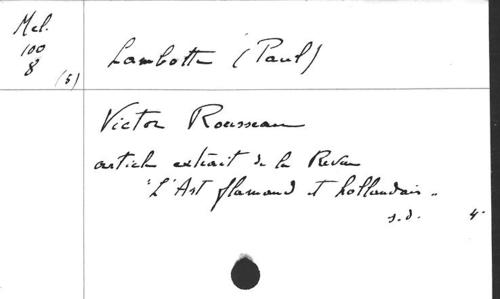 Mel.
100
8
(5)
Lambotte (Paul)
Victor Rousseau
article extrait de la Revue
"L'Art flamand et hollandais"
s.d. 4°